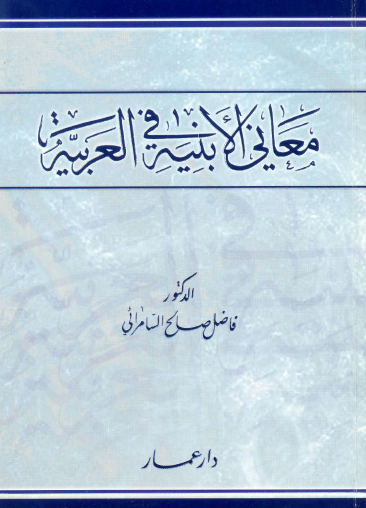 معاني الأبنية في العربية
الدكتور
فاضل صالح السامرائي
دار عمار